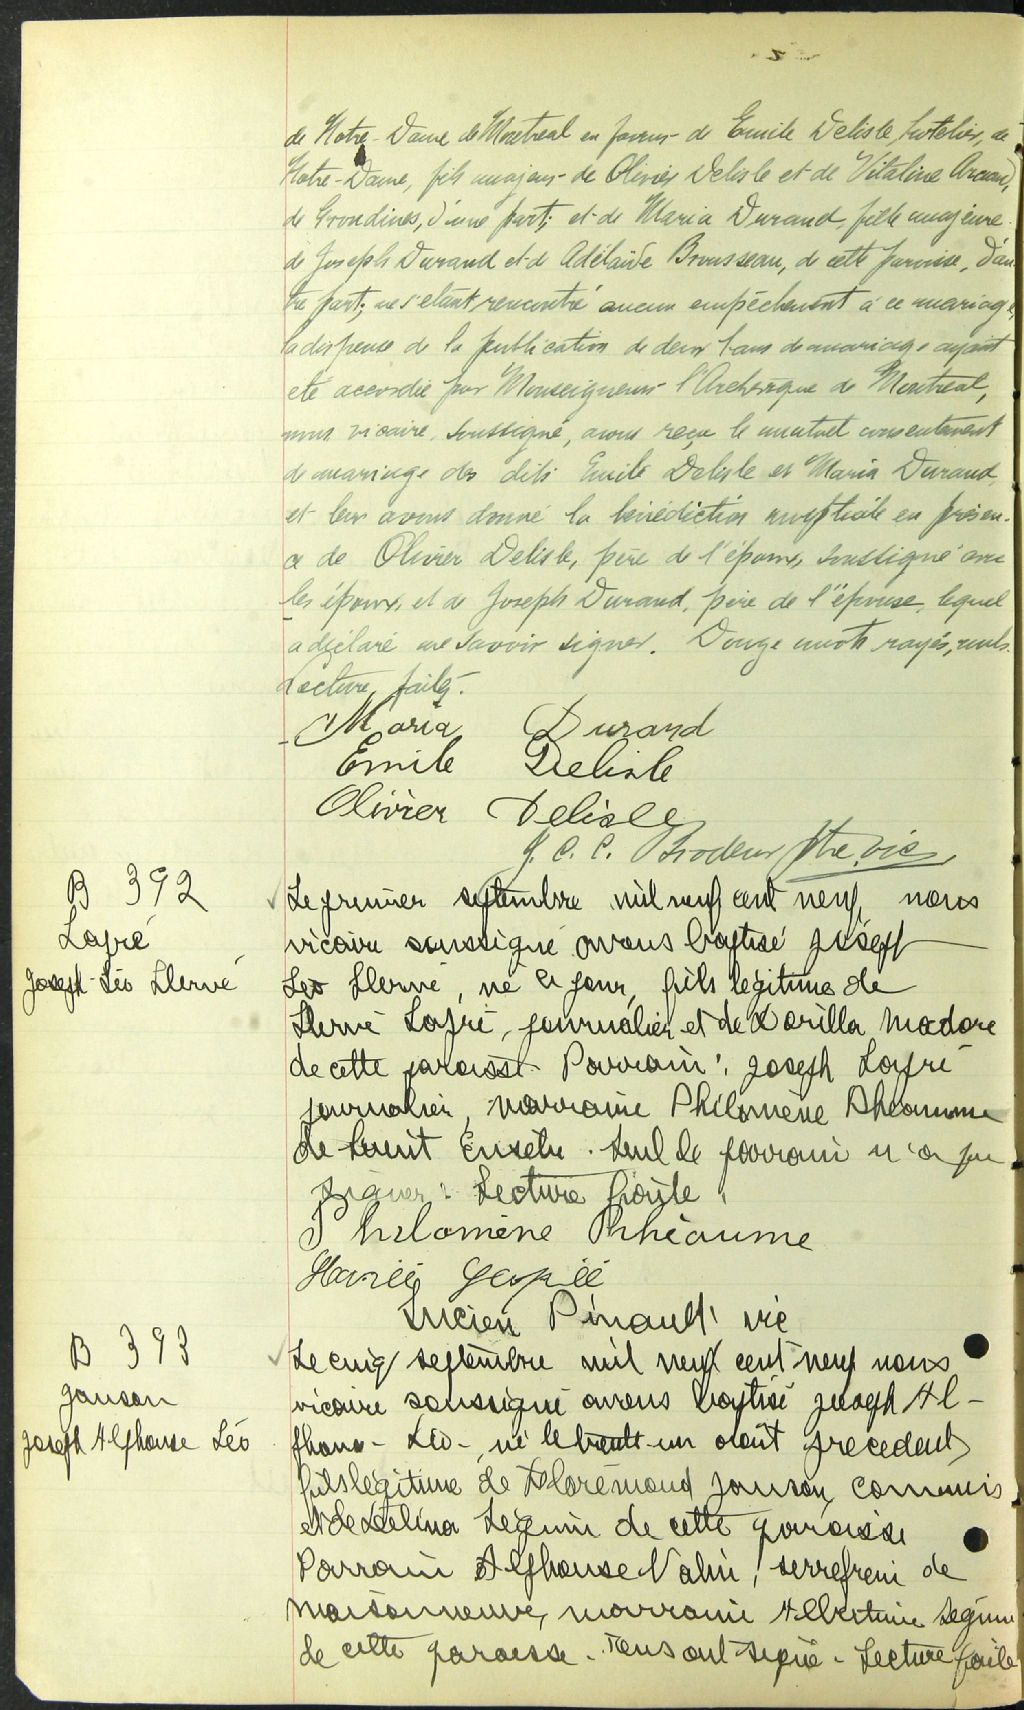 de Notre-Dame de Montreal en faveur de Emile Delisle, hotelier, de
Notre-Dame, fils majeur de Olivier Delisle et de Vitaline Arcand,
de Grondines, d'une part; et de Maria Durand, fille majeure
de Joseph Durand et de Adélaïde Brousseau, de cette paroisse, d'au-
tre part; ne s'étant rencontré aucun empêchement à ce mariage,
la dispense de la publication de deux bans de mariage ayant
été accordée par Monseigneur l'Archevêque de Montreal,
nous vicaire, soussigné, avons reçu le mutuel consentement
de mariage des dits Emile Delisle et Maria Durand
et leur avons donné la bénédiction nuptiale en présen-
ce de Olivier Delisle, père de l'époux, soussigné avec
les époux, et de Joseph Durand, père de l'épouse, lequel
a déclaré ne savoir signer. Douze mots rayés, nuls.
Lecture faite.
Maria Durand
Emile Delisle
Olivier Delisle
J. C. C. Brodeur Ptre, vic
B 392
Lafré
Joseph-Léo Hervé
Le premier septembre mil neuf cent neuf, nous
vicaire soussigné avons baptisé Joseph
Léo Hervé, né ce jour, fils légitime de
Hervé Lafré, journalier, et de Dorilla Madore
de cette paroisse. Parrain: Joseph Lafré
journalier, marraine Philomène Rhéaume
de Saint Eusèbe. Seul le parrain n'a pu
signer. Lecture faite.
Philomène Rhéaume
Lucien Pinault vic
B 393
Janson
Joseph Alphonse Léo
Le cinq septembre mil neuf cent neuf nous
vicaire soussigné avons baptisé Joseph Al-
phonse-Léo-, né le trente-un août précédent,
fils légitime de Florémond Janson, commis
et de Délina Séguin de cette paroisse
Parrain Alphonse Valin, serrefrein de
Maisonneuve, marraine Albertine Séguin
de cette paroisse. Tous ont signé. Lecture faite